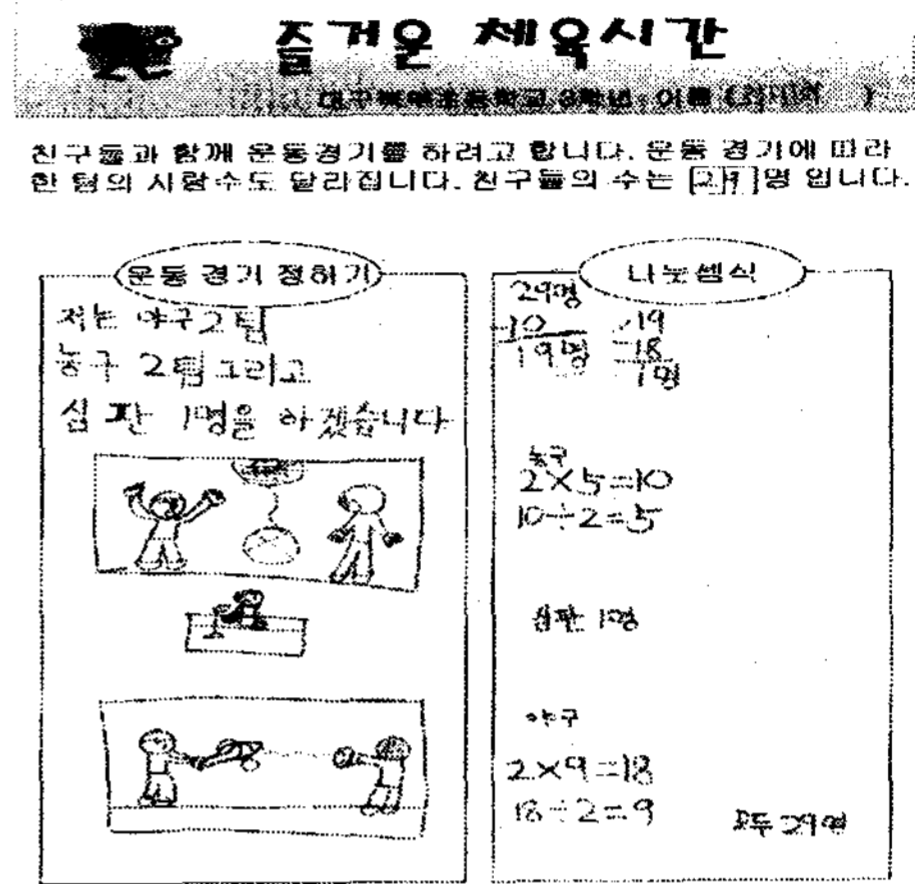 즐거운 체육시간
대구 초등학교 3학년 : 이름 ( )
친구들과 함께 운동경기를 하려고 합니다. 운동 경기에 따라
한 팀의 사람수도 달라집니다. 친구들의 수는 [29]명 입니다.
운동 경기 정하기
저는 야구 2팀
농구 2팀 그리고
심판 1명을 하겠습니다
나눗셈식
29명
-10
19명
19
-18
1명
농구
2×5=10
10÷2=5
심판 1명
야구
2×9=18
18÷2=9
모두 29명